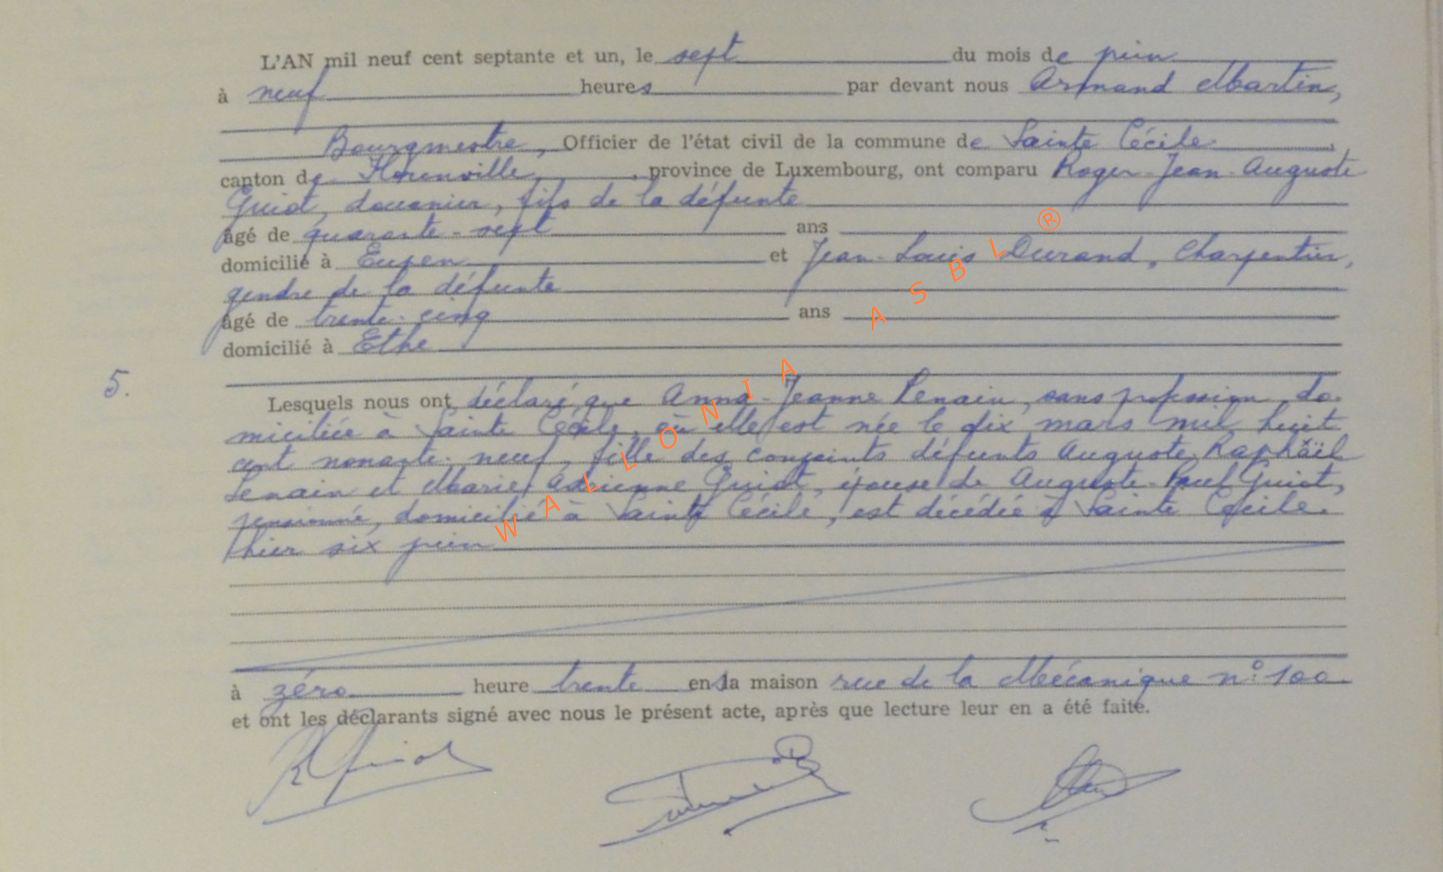 L'AN mil neuf cent septante et un, le sept du mois de juin
à neuf heures par devant nous Armand Martin,
Bourgmestre, Officier de l'état civil de la commune de Sainte Cécile,
canton de Florenville, province de Luxembourg, ont comparu Roger-Jean-Auguste
Guiot, douanier, fils de la défunte
âgé de quarante-sept ans
domicilié à Eupen et Jean-Louis Durand, charpentier,
gendre de la défunte
âgé de trente-cinq ans
domicilié à Ethe
5.
Lesquels nous ont déclaré que Anna-Jeanne Lenain, sans profession, do-
miciliée à Sainte Cécile, où elle est née le dix mars mil huit
cent nonante-neuf, fille des conjoints défunts Auguste Raphaël
Lenain et Marie Adrienne Guiot, épouse de Auguste-Paul Guiot,
pensionné, domicilié à Sainte Cécile, est décédée à Sainte Cécile.
hier six juin
à zéro heure trente en la maison rue de la Mécanique n° 100
et ont les déclarants signé avec nous le présent acte, après que lecture leur en a été faite.
R Guiot
WALLONIA ASBL®